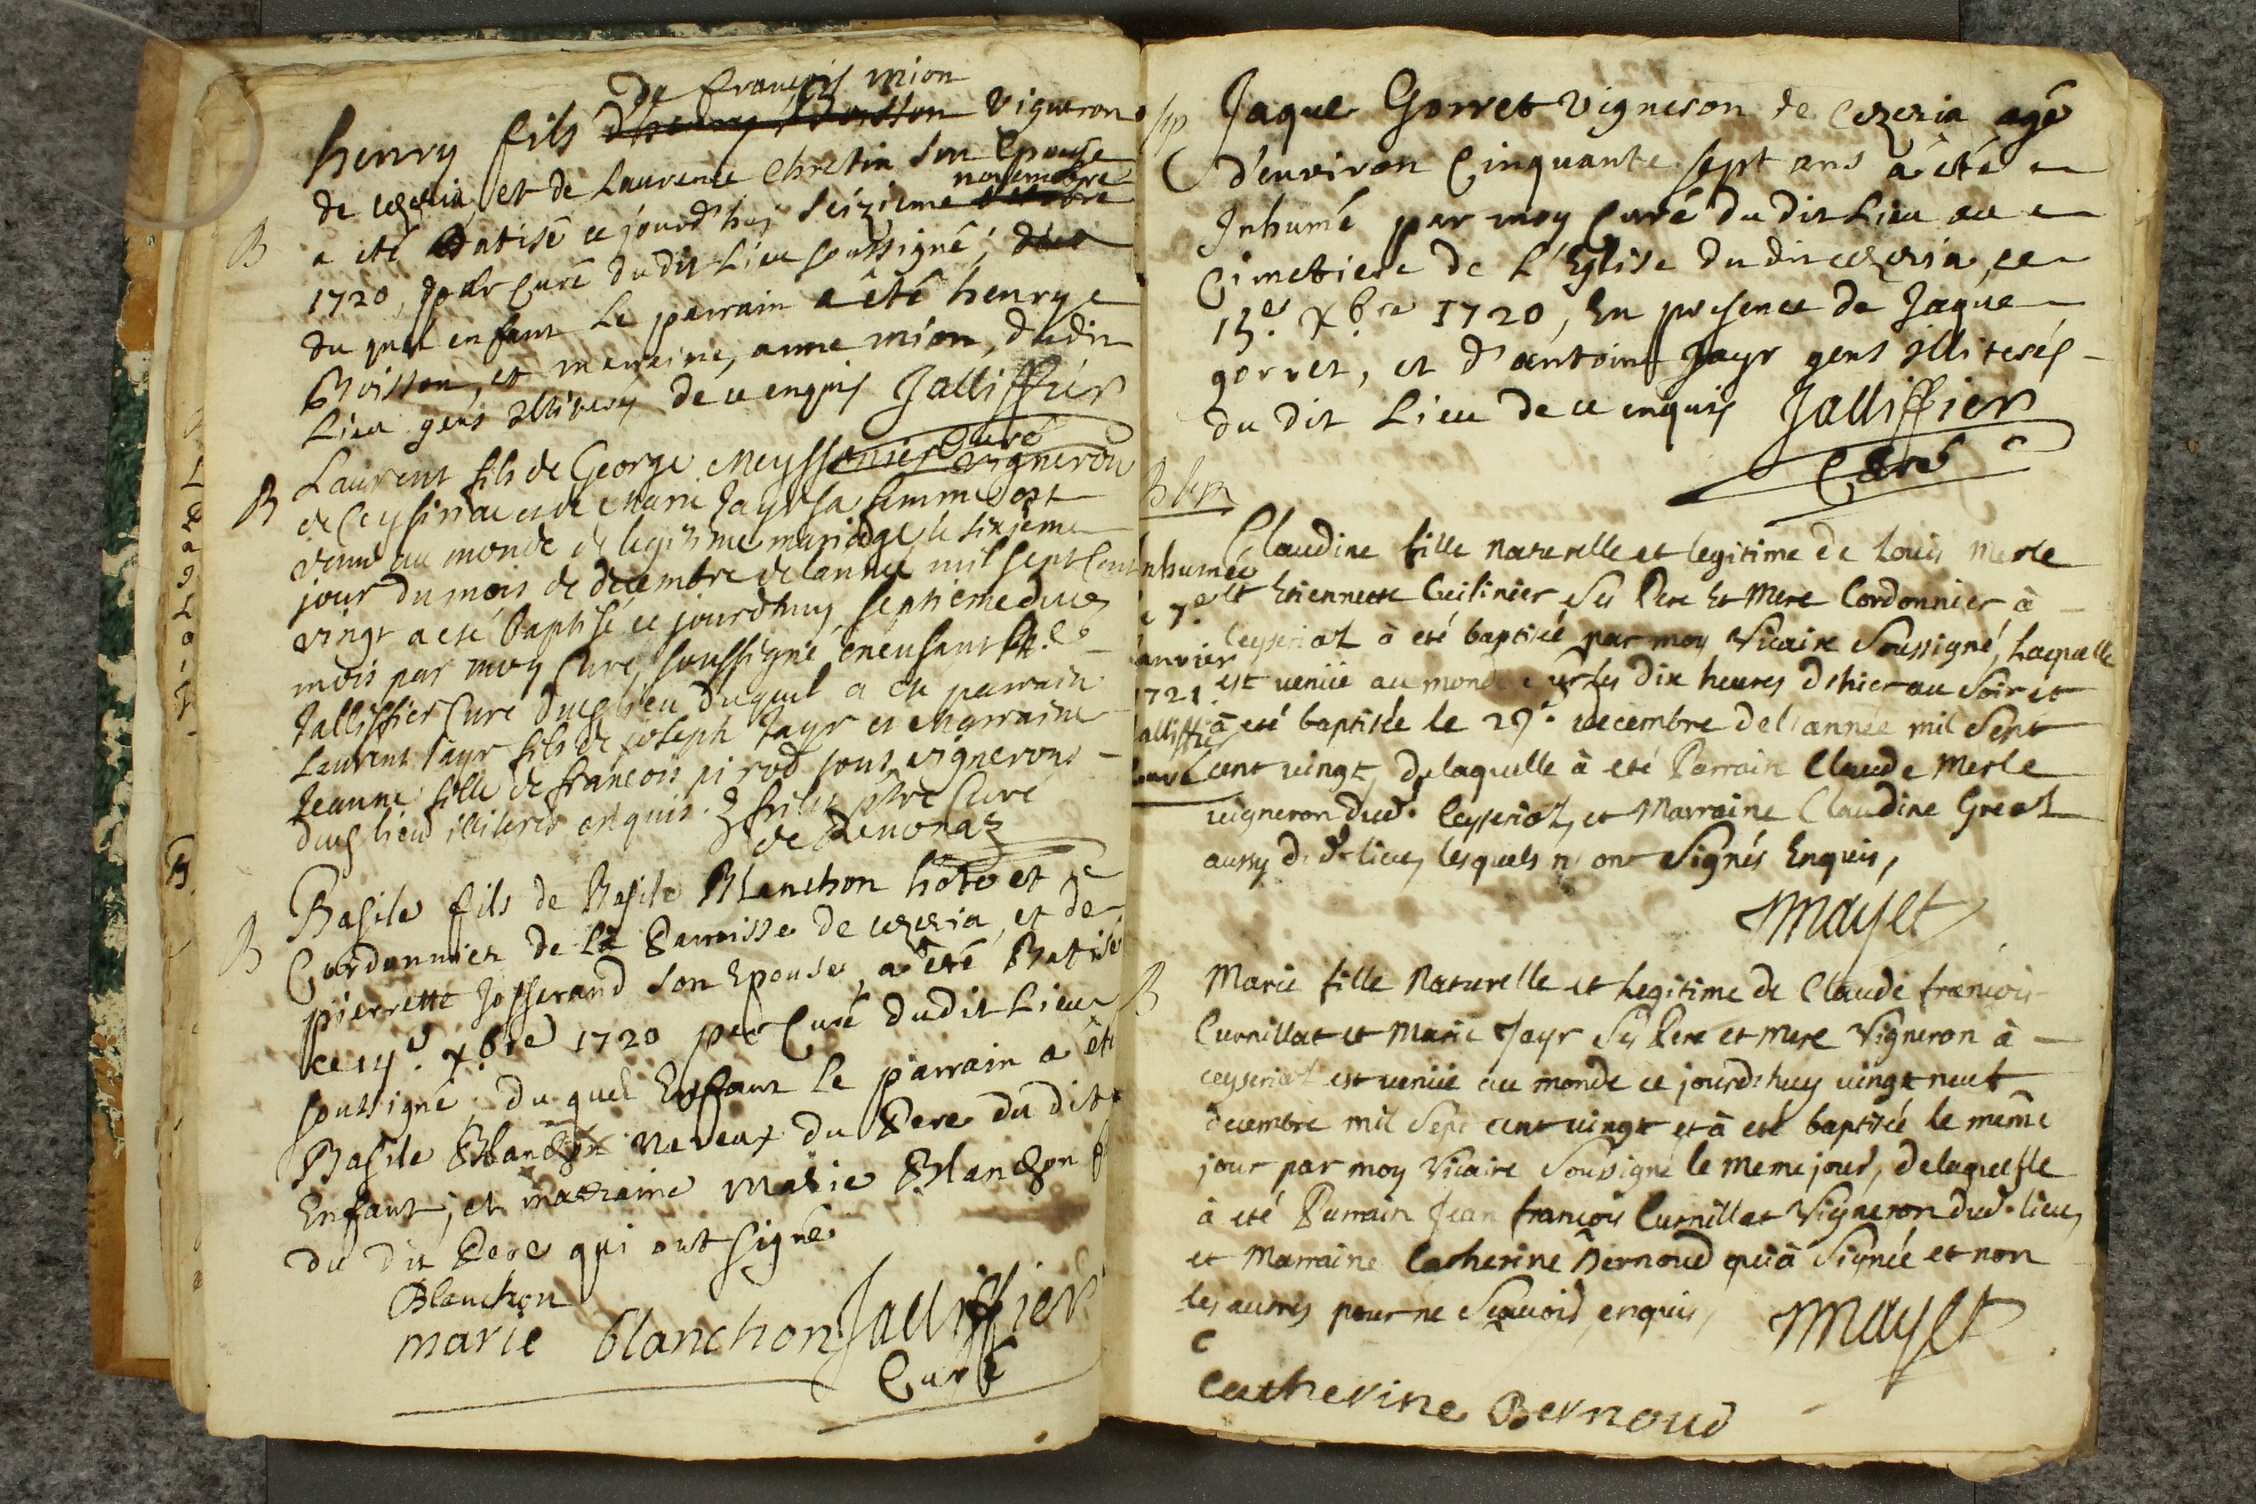 de françois mion
henry fils d'henry Boisson Vigneron
de cezeria, et de Laurence Chretin Son Epouse
novembre
B
a été Batisé ce jourd'huy Seizieme octobre
1720, par Curé du dit Lieu soussigné;
du quel enfant Le parrain a êté henry
Boisson, et maraine, anne mion, dudit
Lieu gens illiterés de ce enquis Jalliffier
Curé
B
Laurent fils de George Meyssonier vigneron
de Ceysiria et de Marie Jayr sa femme est
venu au monde de legitime mariadge le sixieme
jour du mois de decembre de lannée mil sept Cent
vingt a eté baptisé ce jourdhuy septieme dud
mois par moy Curé soussigné en
Jalliffier Curé dud lieu duquel a eté parrain
Laurent Jayr fils de joseph Jayr et Marraine
Jeanne fille de françois pirod tous vignerons
dud lieu illiterés enquis. ptre Curé
de
B
Basile fils de Basile Blanchon hôte et
Cordonnier de La Parroisse de cezeria, et de
pierrette Josserand Son Epouse, a été Batisé
ce 14e. xbre 1720 par Curé dudit Lieu
soussigné; du quel Enfant Le parrain a êté
Basile Blanchon Neveux du Pere du dit
Enfant; et marraine Marie Blanchon
du dit Pere qui ont signé.
Blanchon
marie blanchon Jalliffier
Curé
sep
Jaque Gorret Vigneron de Cezeria agé
d'environ Cinquante sept ans a été
Inhumé par moy Curé du dit Lieu au
Cimettiere de L'Eglise du dit cezeria, ce
15e. xbre 1720, En presence de Jaque
gorret, et d'antoine Jayr gens illiterés
du dit Lieu de ce enquis Jalliffier
Curé
B sep
Claudine fille naturelle et legitime de Louis Merle
Inhumée
et Etiennette Cuisinier Ses Pere Et Mere Cordonnier à
le 7e.
Ceyseriat à eté baptisée par moy Vicaire Soussigné, Laquelle
janvier
est venüe au monde sur les dix heures d'hier au Soir et
1721.
à eté baptisée le 29e. decembre de l'année mil Sept
Jalliffier
cent vingt, de laquelle à eté Parrain Claude Merle
Curé
vigneron dud. Ceyseriat, et Marraine Claudine Great
aussy dud. lieu, lesquels n'ont Signés Enquis,
Mayet
B
Marie fille Naturelle et Legitime de Claude françois
Curnillat et Marie Jayr Ses Pere et Mere Vigneron à
ceyseriat est venüe au monde ce jourdhuy vingt neuf
decembre mil Sept cent vingt et à eté baptisée le même
jour par moy Vicaire Sousigné le meme jour, de laquelle
à eté Parrain Jean françois Curnillat Vigneron dud. lieu,
et Marraine Catherine Bernoud qui à Signée et non
les autres pour ne Sçavoir, enquis, Mayet
Catherine Bernoud